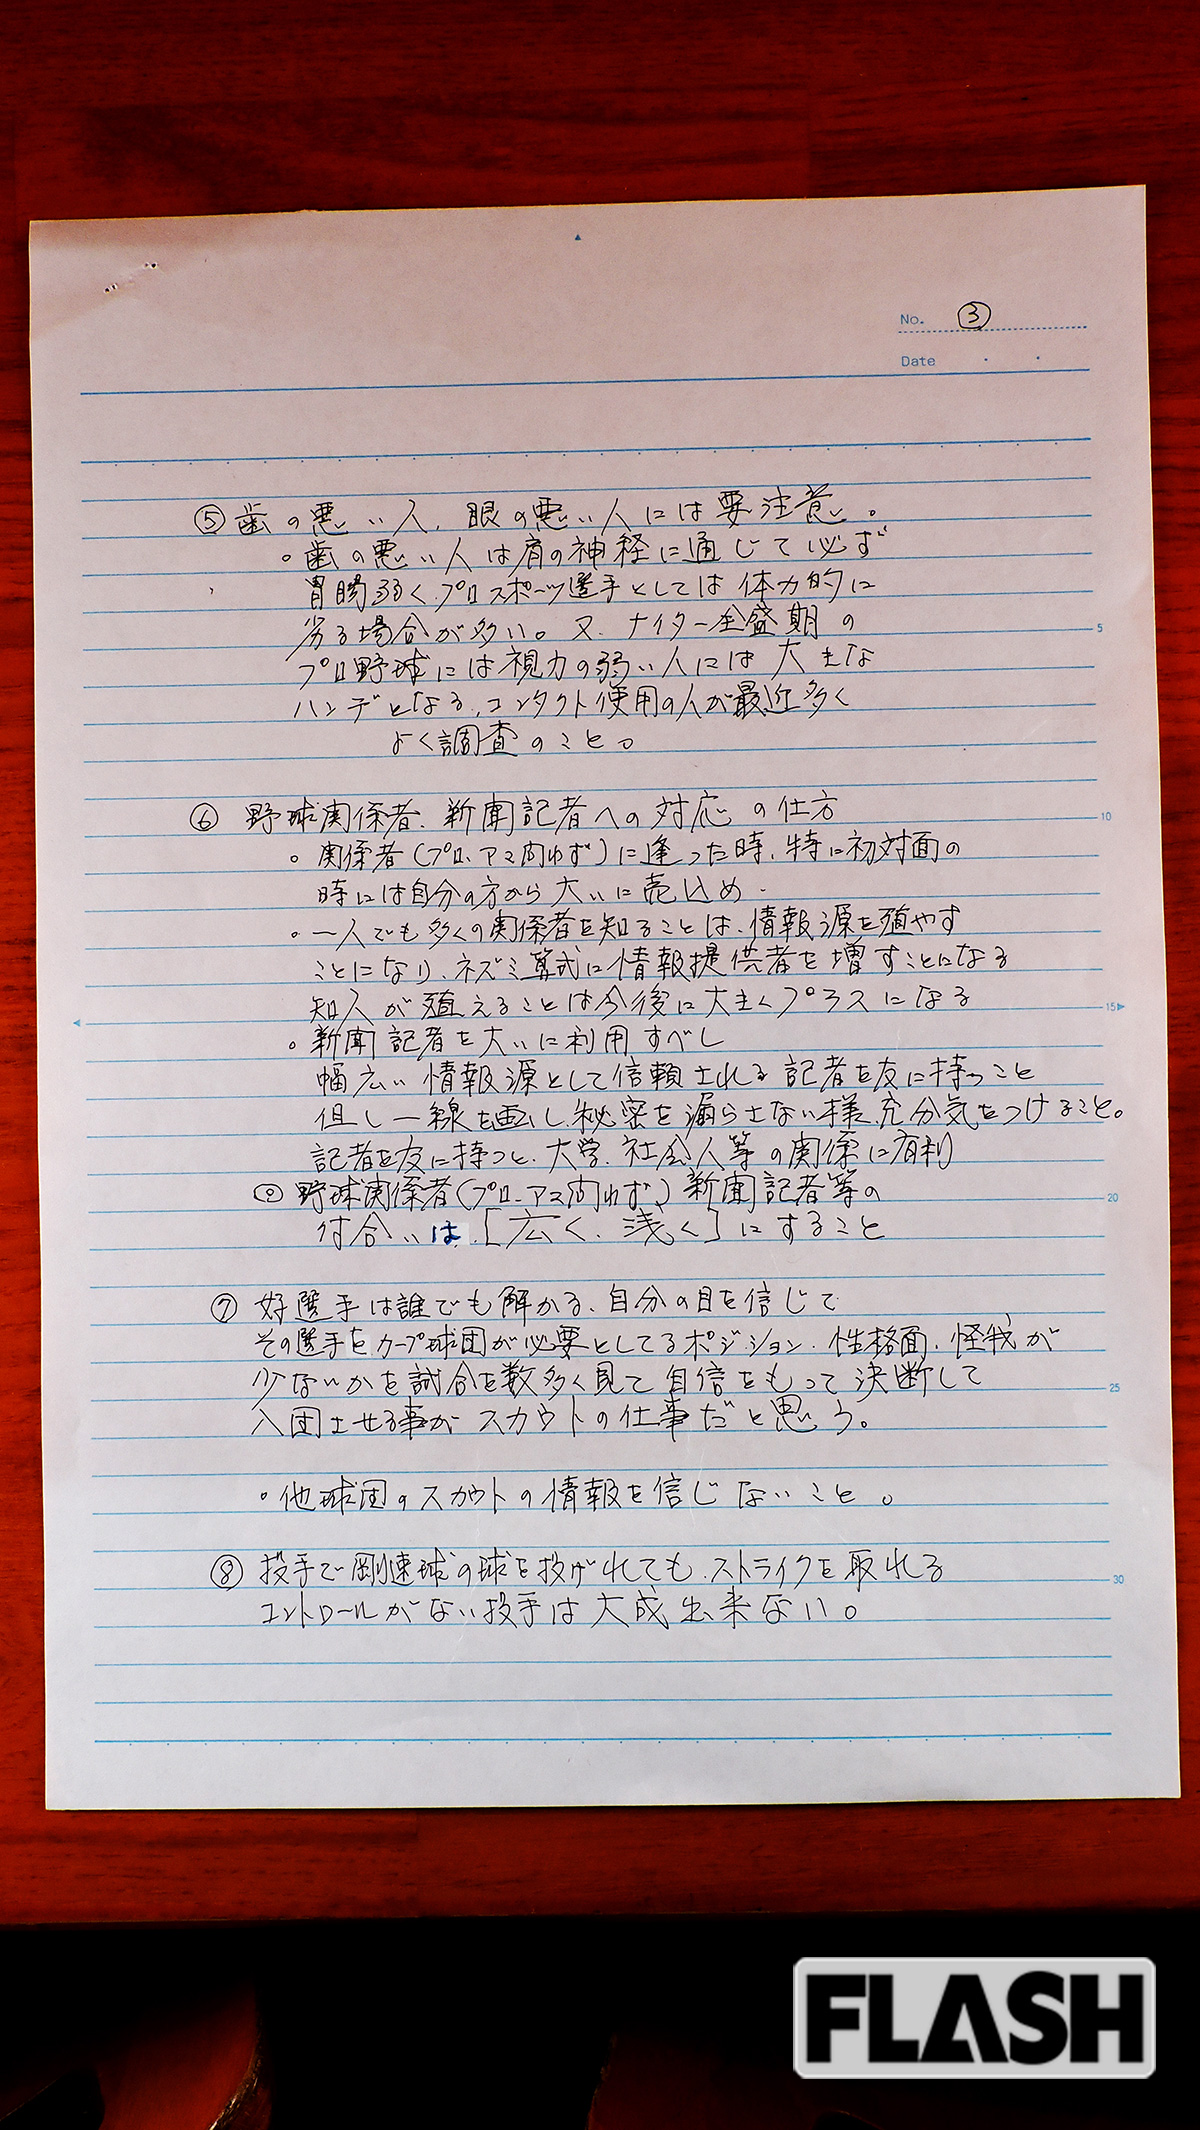 No. ③
Date
⑤ 歯の悪い人、眼の悪い人には要注意。
・歯の悪い人は肩の神経に通じて必ず
胃腸弱く、プロスポーツ選手としては体力的に
劣る場合が多い。又、ナイター全盛期の
5
プロ野球には視力の弱い人には大きな
ハンデとなる、コンタクト使用の人が最近多く
よく調査のこと。
⑥ 野球関係者、新聞記者への対応の仕方
10
・関係者(プロ、アマ問わず)に逢った時、特に初対面の
時には自分の方から大いに売込め.
・一人でも多くの関係者を知ることは、情報源を殖やす
ことになり、ネズミ算式に情報提供者を増すことになる
知人が殖えることは今後に大きくプラスになる
15
・新聞記者を大いに利用すべし
幅広い情報源として信頼される記者を友に持つこと
但し一線を画し、秘密を漏らさない様、充分気をつけること。
記者を友に持つと、大学、社会人等の関係に有利
◎ 野球関係者(プロ、アマ問わず)新聞記者等の
20
付合いは、[広く、浅く]にすること
⑦ 好選手は誰でも解かる、自分の目を信じて
その選手をカープ球団が必要としてるポジション、性格面、怪我が
少ないかを試合を数多く見て自信をもって決断して
25
入団させる事がスカウトの仕事だと思う。
・他球団のスカウトの情報を信じないこと。
⑧ 投手で剛速球の球を投げれても、ストライクを取れる
30
コントロールがない投手は大成出来ない。
FLASH